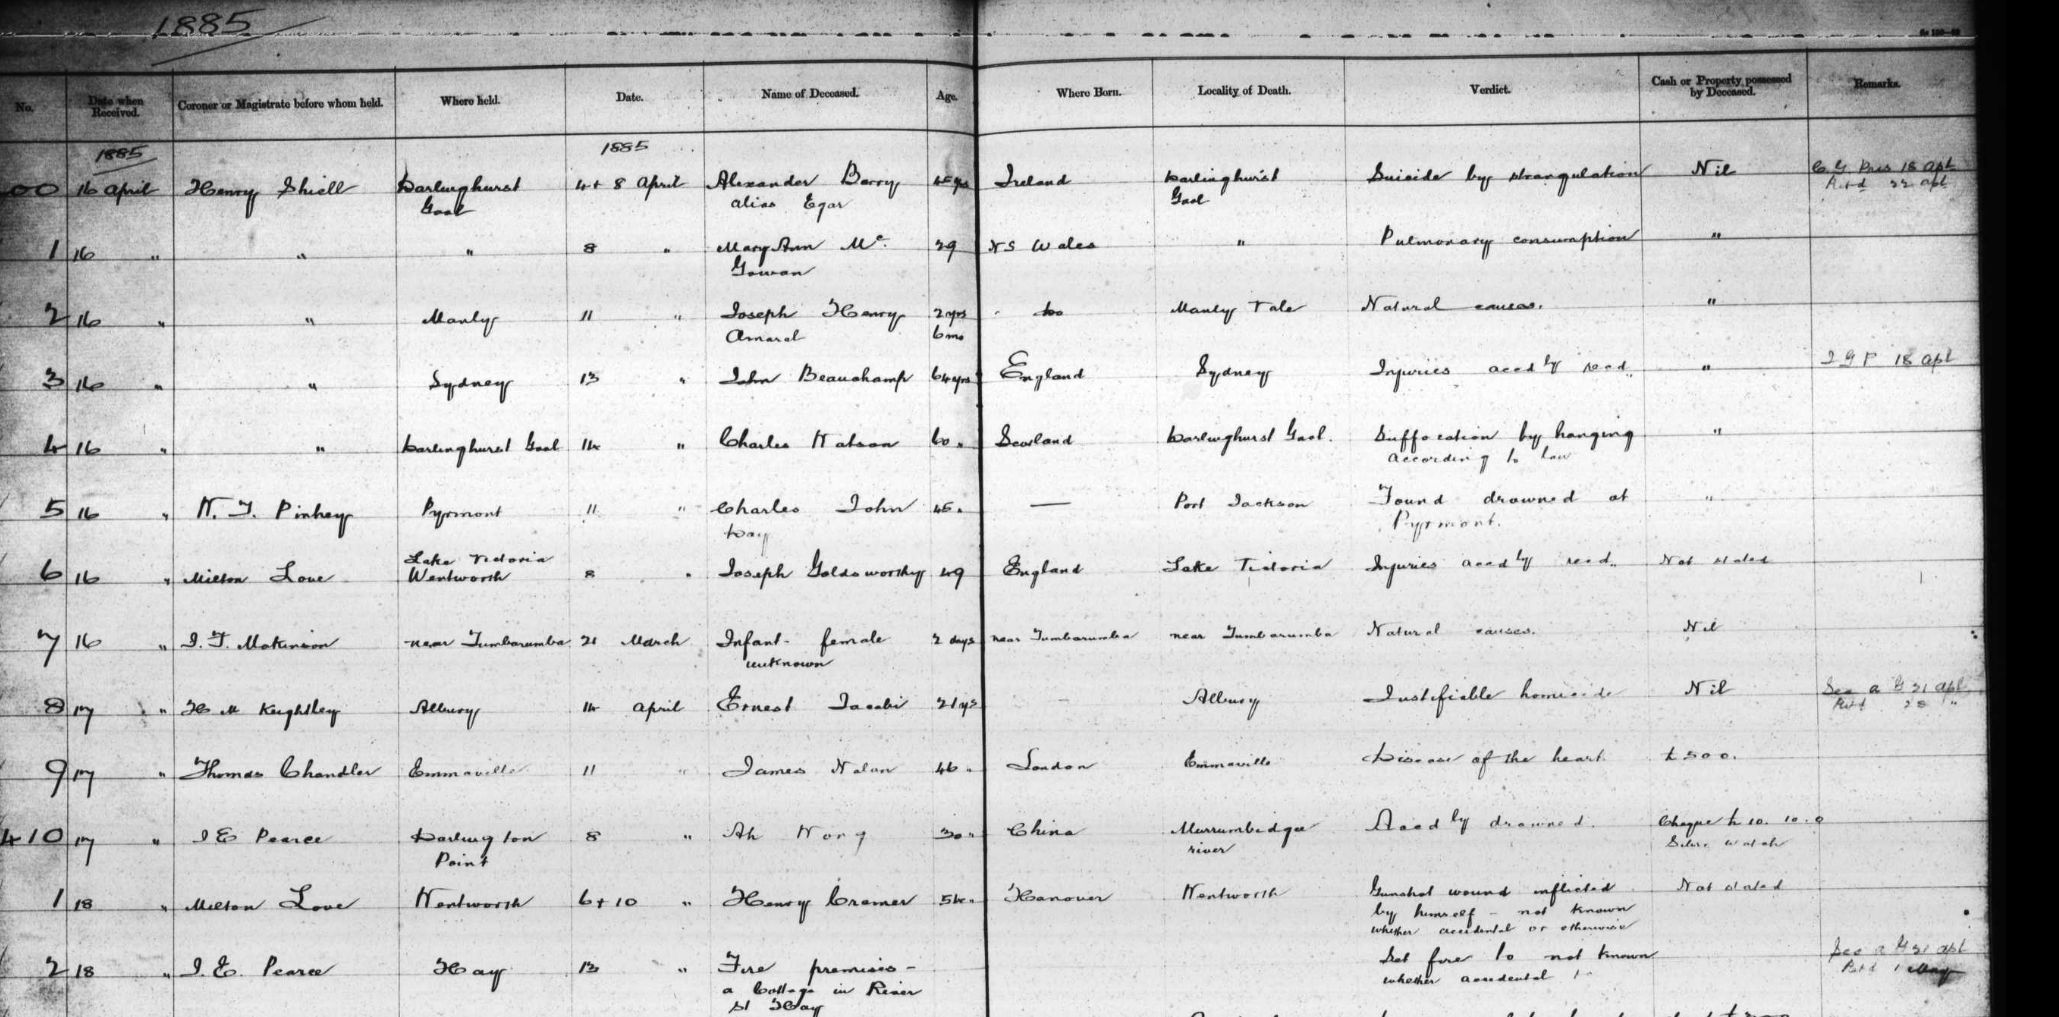 1885
No. Date when Received. Coroner or Magistrate before whom held. Where held. Date. Name of Deceased. Age. Where Born. Locality of Death. Verdict. Cash or Property possessed by Deceased. Remarks.
1885 1885
00 16 april Henry Shiell Darlinghurst 4+8 April Alexander Berry 45 yrs Ireland Darlinghurst Suicide by strangulation Nil 18 apl
Gaol alias Egar Gaol 22 apl
1 16 " " " 8 " Mary Ann Mc 29 N S Wales " Pulmonary consumption "
Gowan
2 16 " " Manly 11 " Joseph Henry 2 yrs do Manly Natural causes. "
Amaral 6 mo
3 16 " " Sydney 13 " John Beauchamp 64 yrs England Sydney Injuries accdly recd. " I G P 18 apl
4 16 " " Darlinghurst Gaol 14 " Charles Watson 60 " Scotland Darlinghurst Gaol. Suffocation by hanging "
according to law
5 16 " N. J. Pinhey Pyrmont 11 " Charles John 45 " — Port Jackson Found drowned at "
Day Pyrmont.
6 16 " Milton Love Lake Victoria 8 " Joseph Goldsworthy 49 England Lake Victoria Injuries accdly recd. Not stated
Wentworth
7 16 " J. F. Makinson near Tumbarumba 21 March Infant female 2 days near Tumbarumba near Tumbarumba Natural causes. Nil
unknown
8 17 " H M Keightley Albury 14 april Ernest Jacobi 21 yrs - Albury Justifiable homicide Nil See a G 21 apl
Retd 28 "
9 17 " Thomas Chandler Emmaville 11 " James Nolan 46 " London Emmaville Disease of the heart £500.
410 17 " J E Pearce Darlington 8 " Ah Wong 30 " China Murrumbidgee Accdly drowned. Cheque £10. 10. 0
Point river Silver watch
1 18 " Milton Love Wentworth 6+10 " Henry Cramer 54 " Hanover Wentworth Gunshot wound inflicted Not stated
by himself - not known
whether accidental or otherwise
2 18 " J. E. Pearce Hay 13 " Fire premises - Set fire to not known See a G 21 apl
a Cottage in River whether accidental Retd 1 May
St Hay